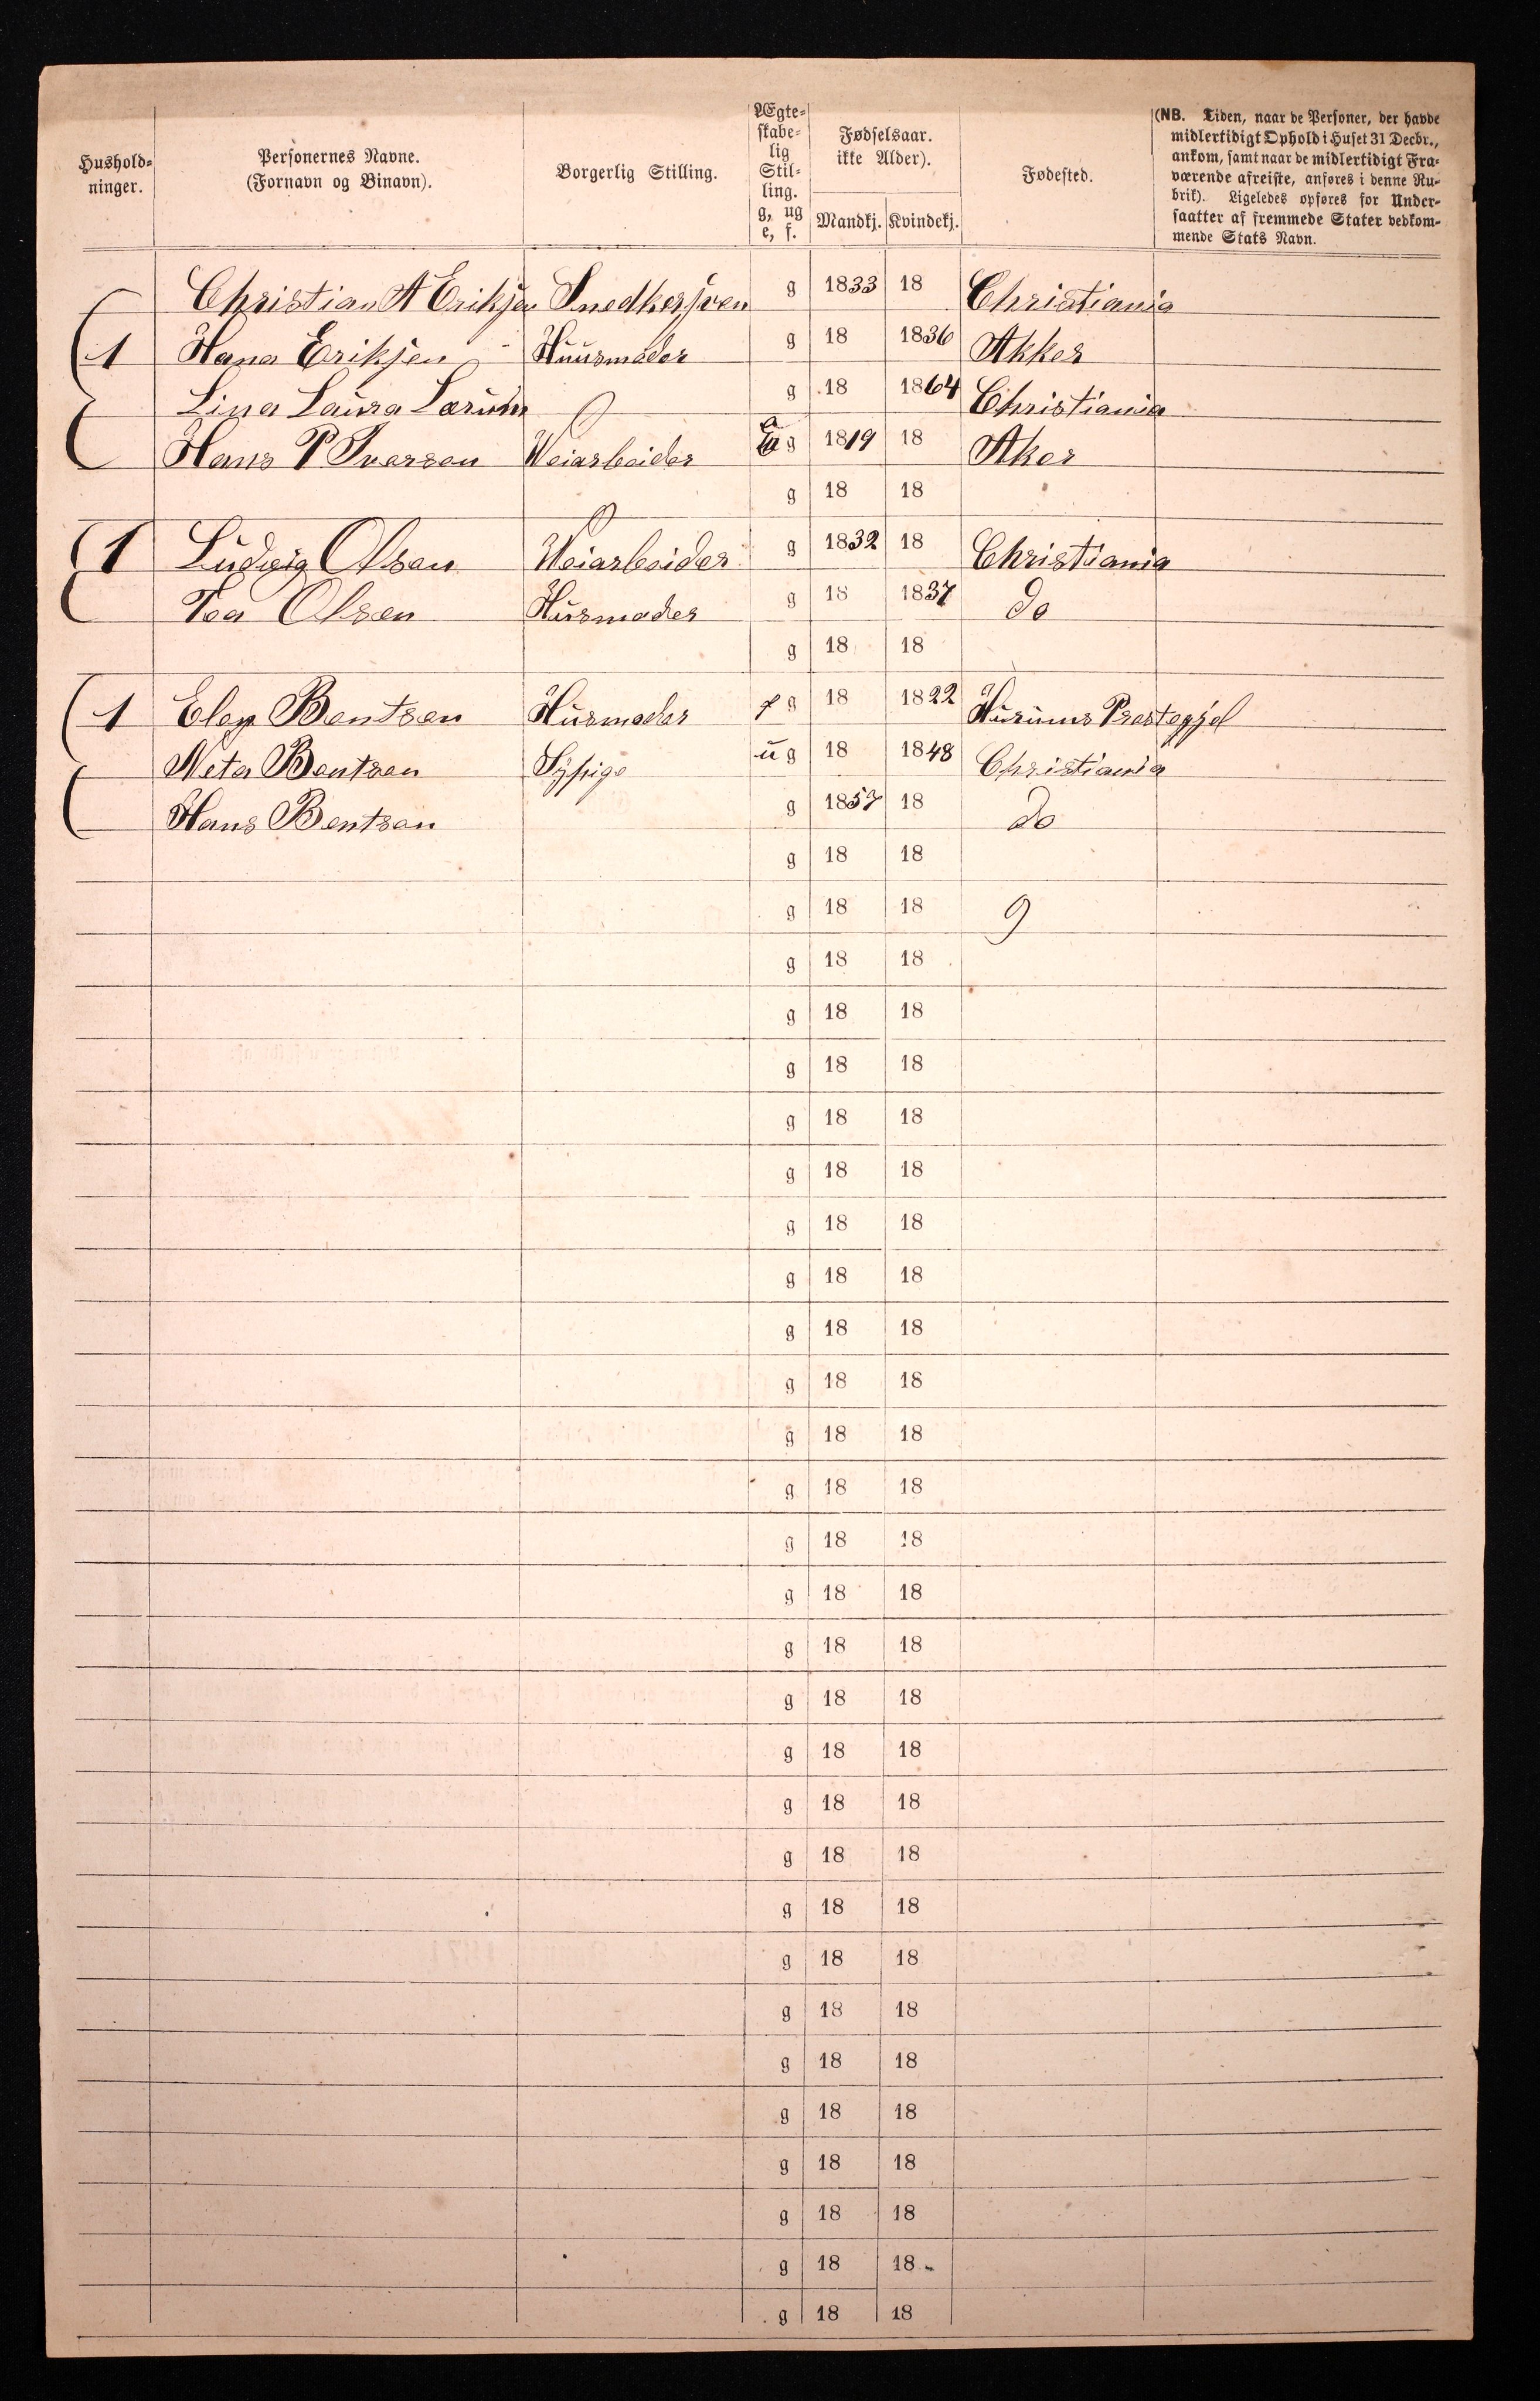 Hushold-
ninger.
Personernes Navne.
(Fornavn og Binavn).
Borgerlig Stilling.
Ægte-
skabe-
lig
Stil-
ling.
g, ug
e, f.
Fødselsaar.
ikke Alder).
Mandkj. Kvindekj.
Fødested.
(NB. Tiden, naar de Personer, der havde
midlertidigt Ophold i Huset 31 Decbr.,
ankom, samt naar de midlertidigt Fra-
værende afreiste, anføres i denne Ru-
brik). Ligeledes opføres for Under-
saatter af fremmede Stater vedkom-
mende Stats Navn.
Christian A Eriksen Snedkersven g 1833 18 Christiania
1 Hana Eriksen Huusmoder g 18 1836 Akker
Lina Laura Lærum g 18 1864 Christiania
Hans P Iversen Veiarbeider g 1819 18 Aker
g 18 18
1 Ludvig Olsen Veiarbeider g 1832 18 Christiania
Tea Olsen Husmoder g 18 1837 do
g 18 18
1 Elen Bentsen Husmoder f g 18 1822 Hurums Prestegjel
Neta Bentsen Sypige u g 18 1848 Christiania
Hans Bentsen g 1857 18 do
g 18 18
g 18 18 9
g 18 18
g 18 18
g 18 18
g 18 18
g 18 18
g 18 18
g 18 18
g 18 18
g 18 18
g 18 18
g 18 18
g 18 18
g 18 18
g 18 18
g 18 18
g 18 18
g 18 18
g 18 18
g 18 18
g 18 18
g 18 18
g 18 18
g 18 18
g 18 18
g 18 18
g 18 18
g 18 18